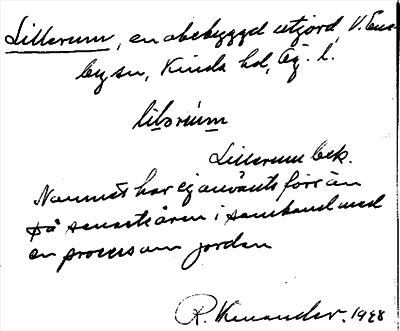 Lillerum, en obebyggd utjord, V. Ene-
by sn, Kinda hd, Ög. l.
lilərùm
Lillerum bek.
Namnet har ej använts förrän
på senaste åren i samband med
en process om jorden
R. Kenander. 1928